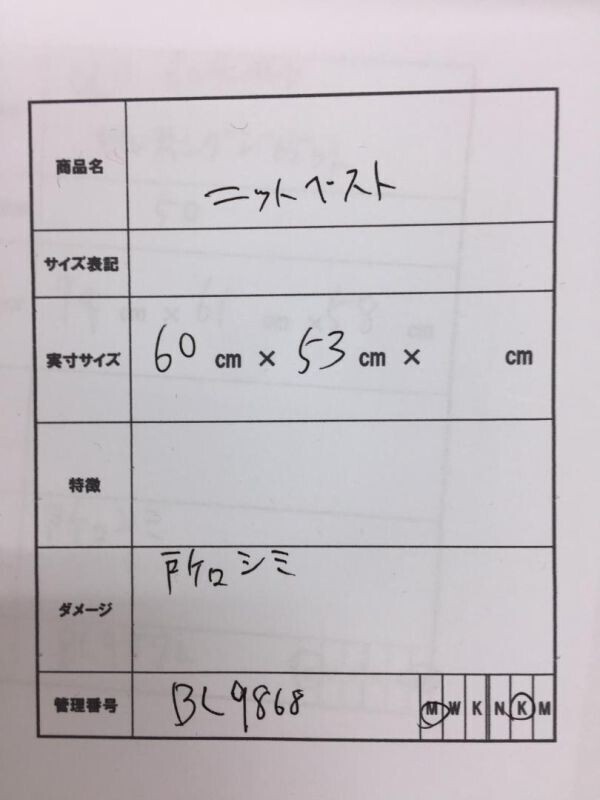 商品名 ニットベスト
サイズ表記
実寸サイズ 60 cm × 53 cm × cm
特徴
ダメージ シミ
管理番号 BL9868 M W K N K M